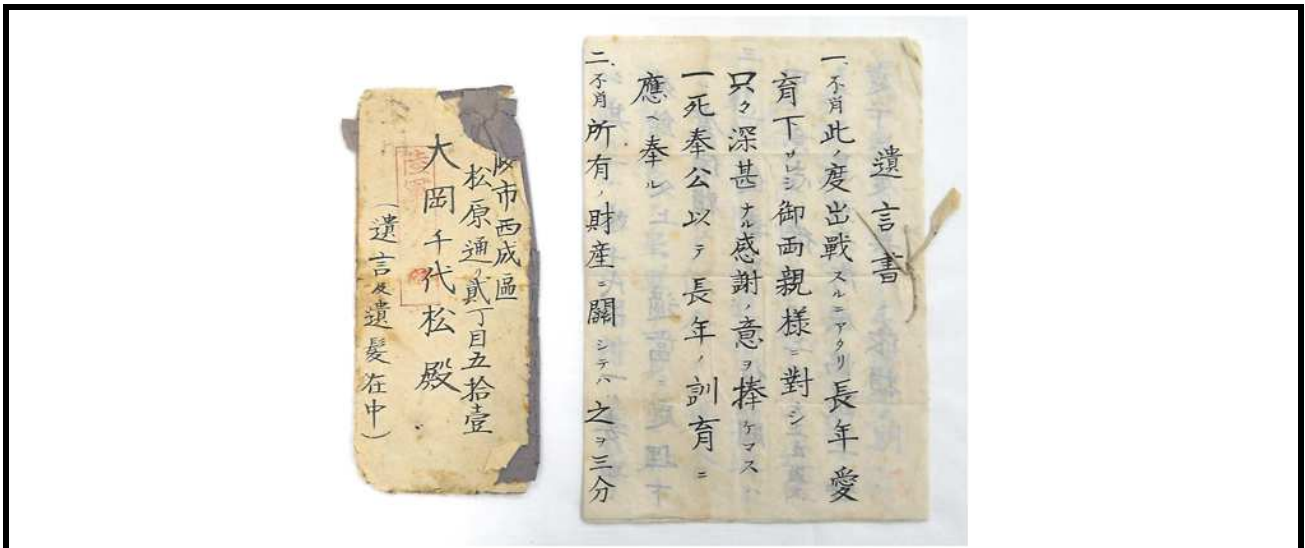 遺言書
一、不肖此ノ度出戰スルニアタリ長年愛
育下サレシ御両親様ニ對シ
只々深甚ナル感謝ノ意ヲ捧ケマス
一死奉公以テ長年ノ訓育ニ
應ヘ奉ル
二、不肖所有ノ財産ニ關シテハ之ヲ三分
市西成區
松原通リ貳丁目五拾壹
大岡千代松殿
（遺言及遺髪在中）